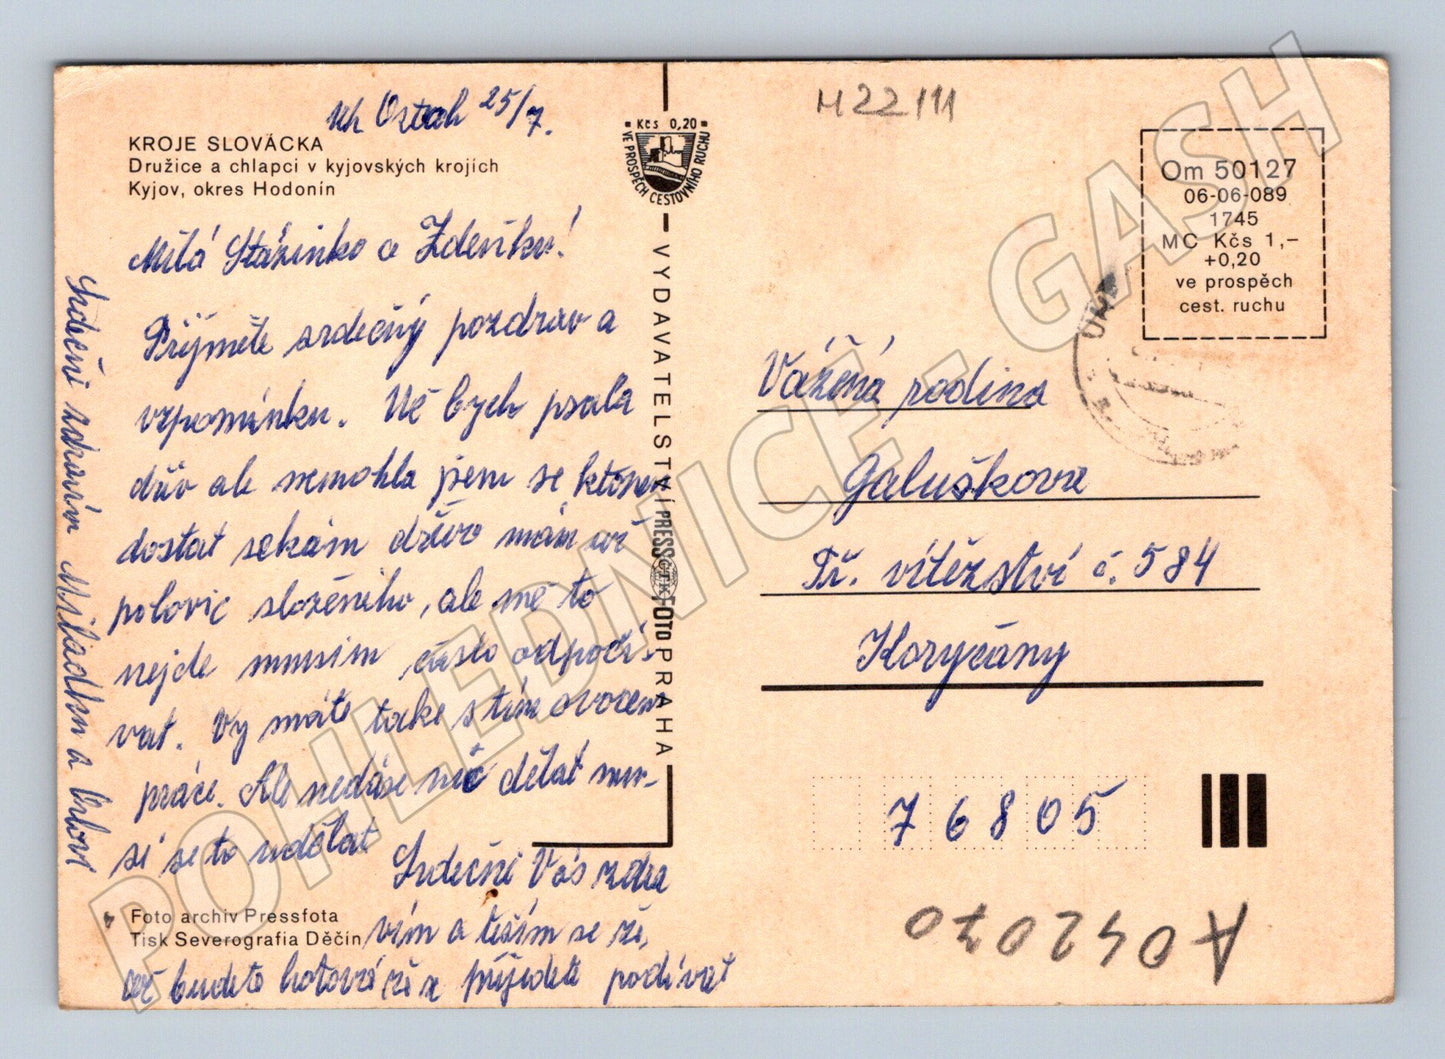 Uh Ostroh 25/7.
KROJE SLOVÁCKA
Družice a chlapci v kyjovských krojích
Kyjov, okres Hodonín
Milá Stázinko a Zdeňku!
Přijměte srdečný pozdrav a
vzpomínku. Už bych psala
dřív ale nemohla jsem se k tomu
dostat sekám dřívo mám už
polovic složeného, ale mě to
nejde musím často odpočí-
vat. Vy máte také s tím ovocem
práce. Ale nedá se nic dělat mu-
sí se to udělat
Srdečně Vás zdra
vím a těším se že,
už budete hotoví že se příjedete podívat
Srdečně zdraví Miladka a
Foto archiv Pressfota
Tisk Severografia Děčín
Kčs 0,20
VE PROSPĚCH CESTOVNÍHO RUCHU
VYDAVATELSTVÍ PRESSFOTO PRAHA
ČTK
M22111
Om 50127
06-06-089
1745
MC Kčs 1,-
+0,20
ve prospěch
cest. ruchu
Vážená rodina
Galuškova
Tř. vítězství č. 584
Koryčany
76805
A042070
POHLEDNICE - GASH